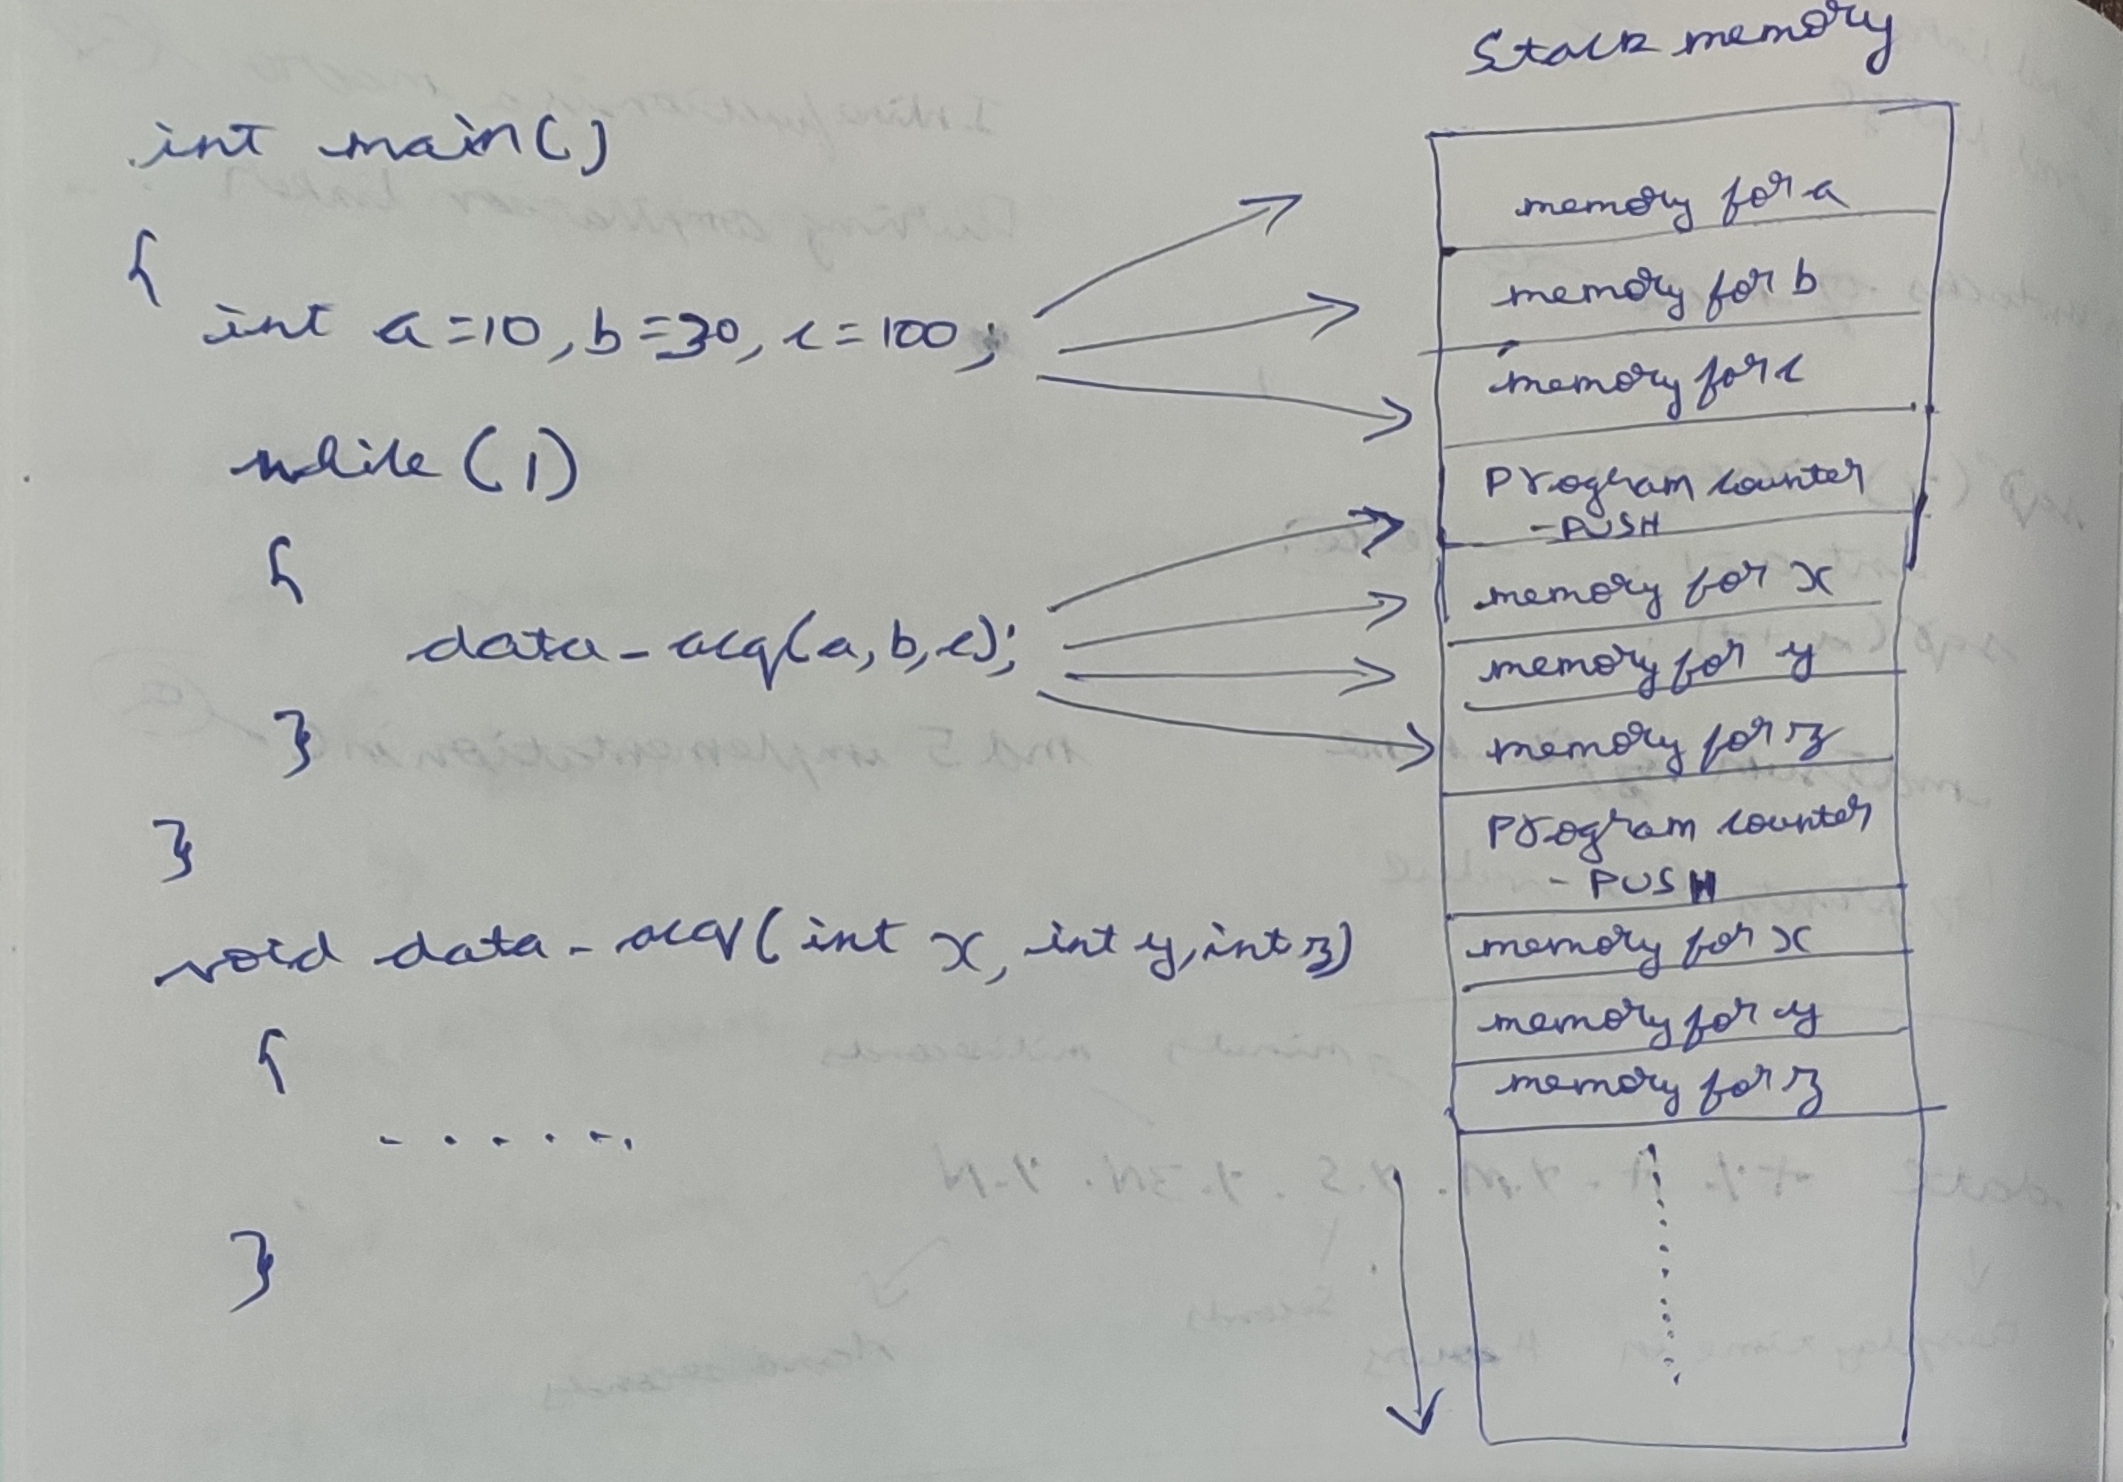 Stack memory
int main()
{
int a=10, b=30, c=100;
while (1)
{
data-acq(a,b,c);
}
}
void data-acq(int x, int y, int z)
{
......
}
memory for a
memory for b
memory for c
Program counter
-PUSH
memory for x
memory for y
memory for z
Program counter
- PUSH
memory for x
memory for y
memory for z